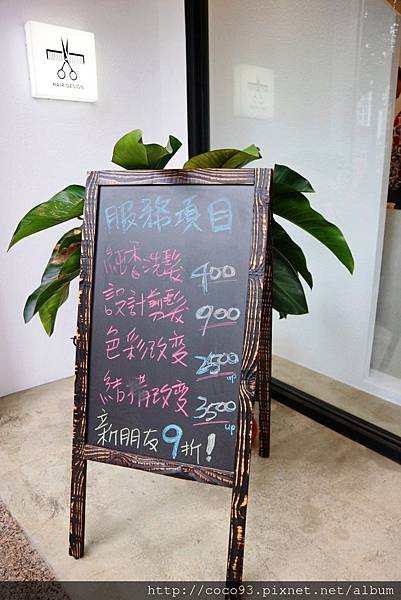 HAIR DESIGN
服務項目
純香洗髮 400
設計剪髮 900
色彩改變 2500 up
結構改變 3500 up
新朋友9折！
http://coco93.pixnet.net/album